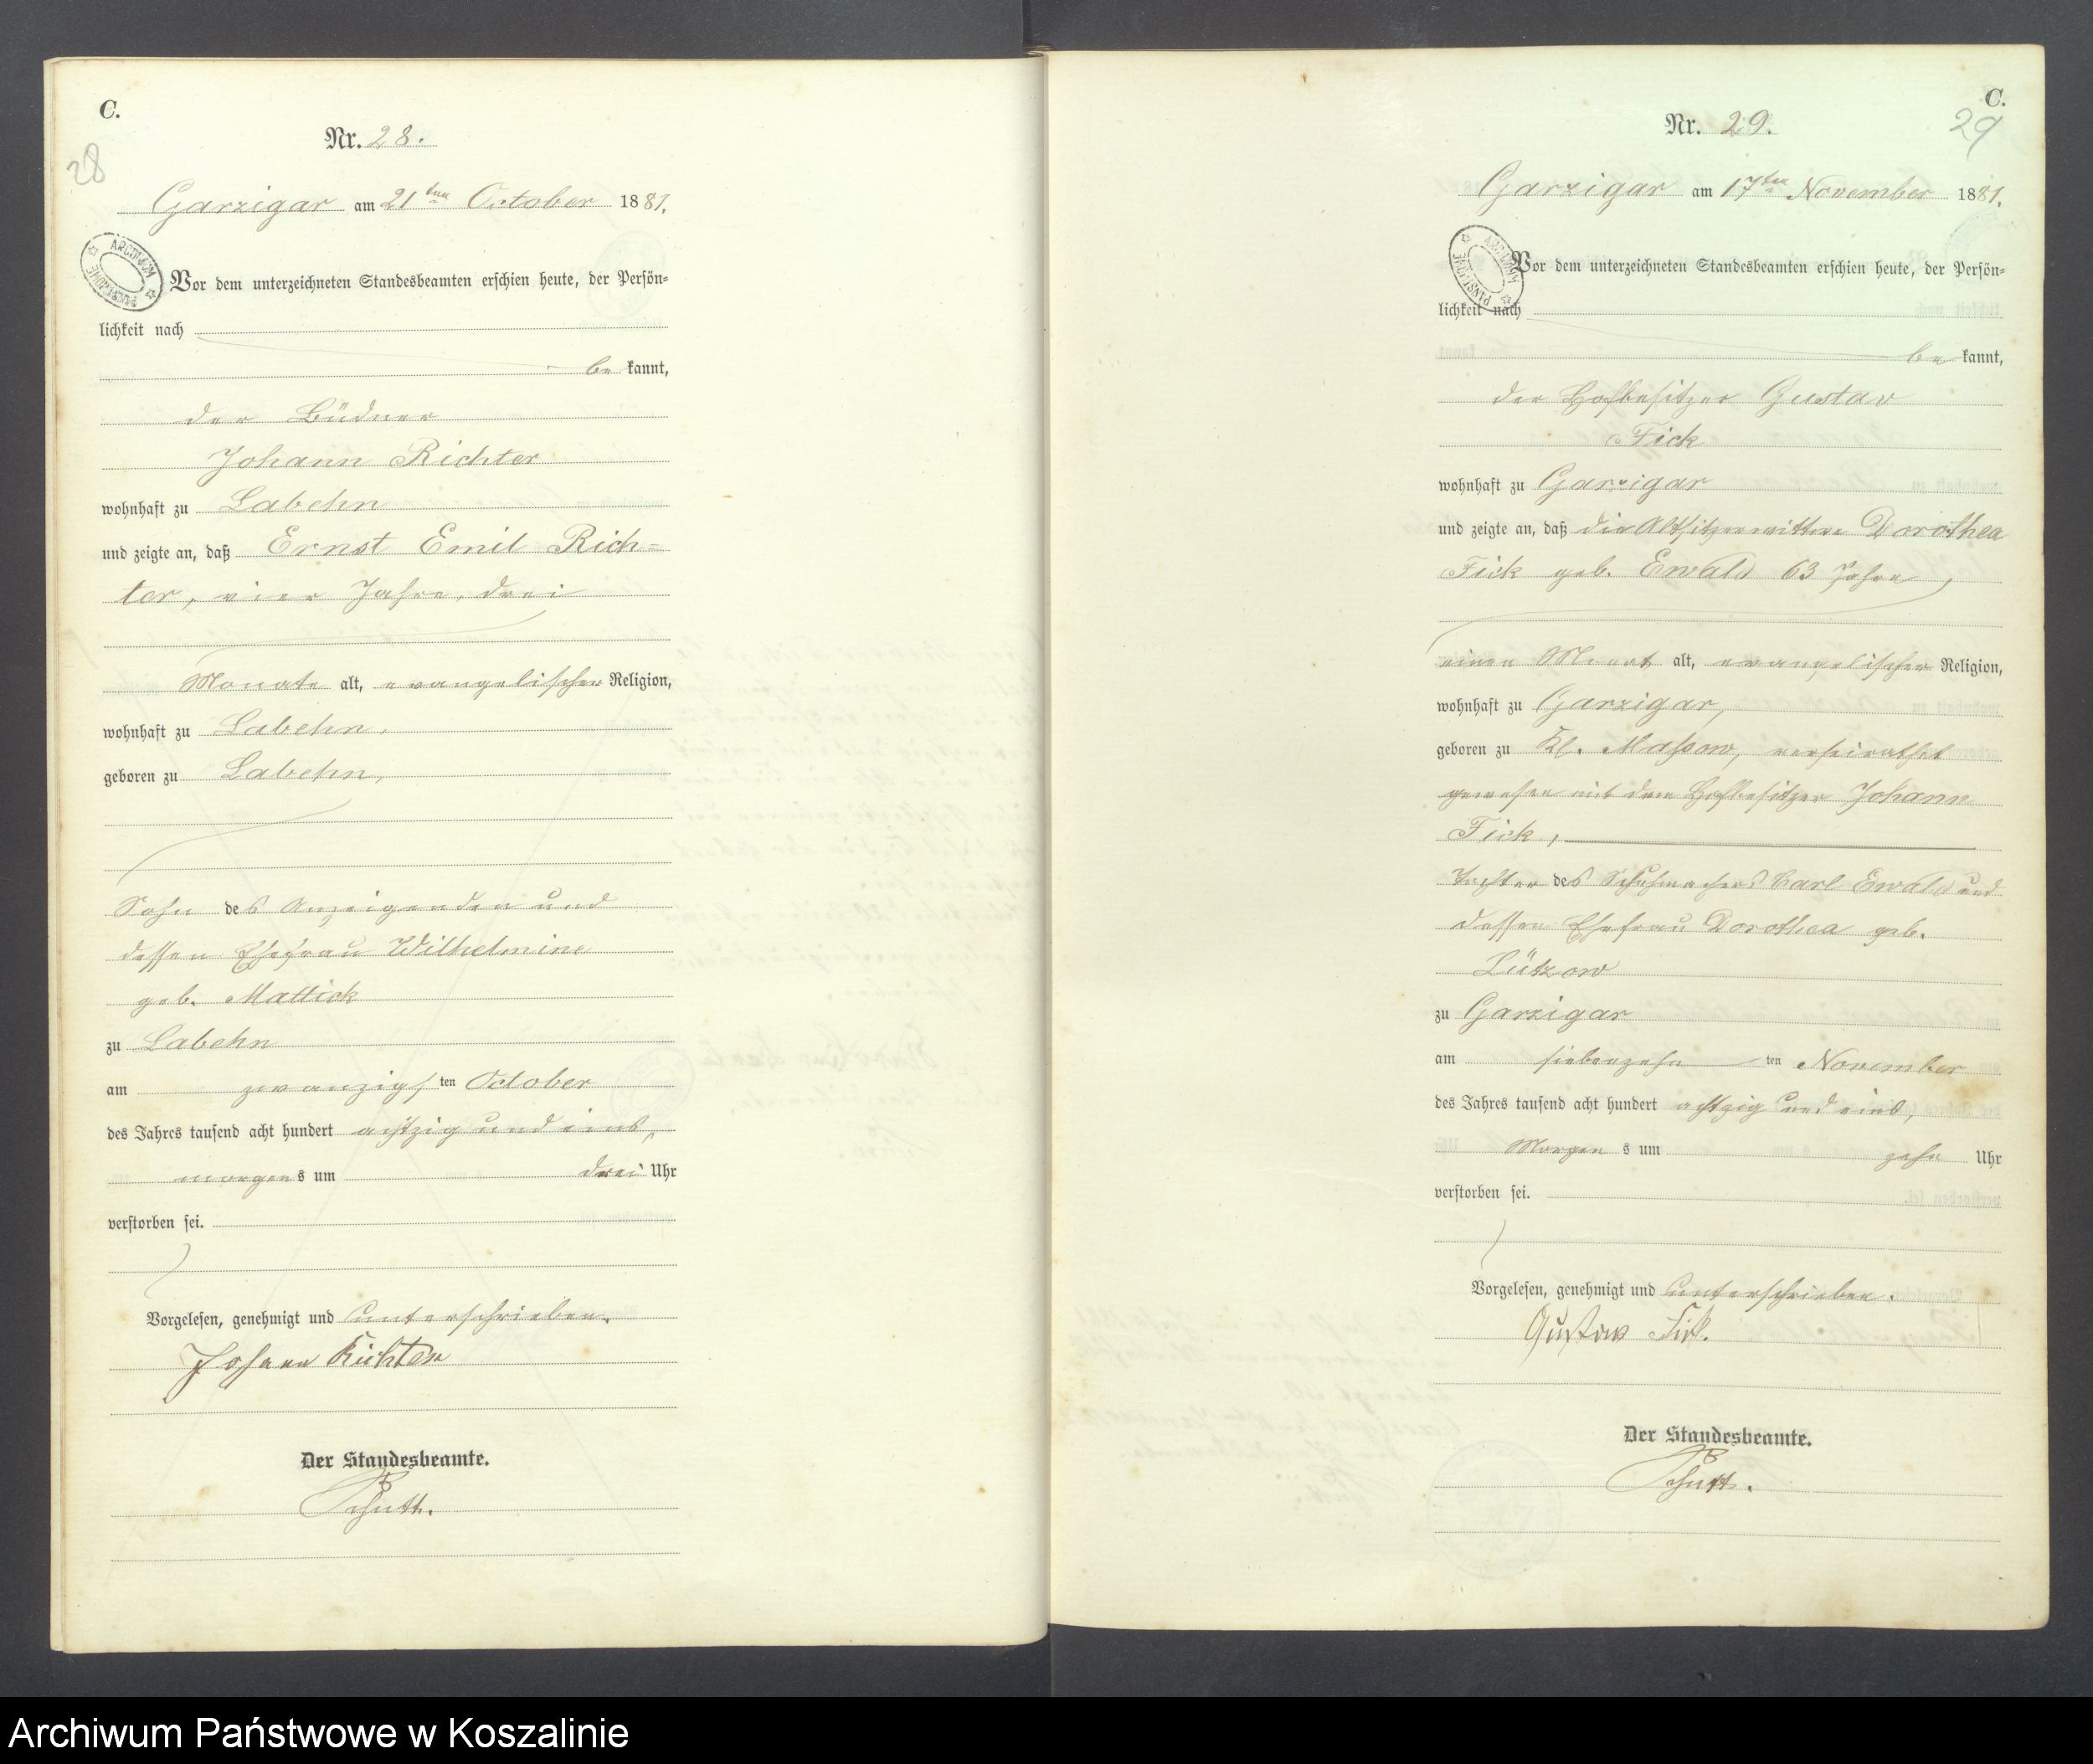 C.
Nr. 28.
28
Garzigar am 21ten October 1881.
ARCHIWUM PAŃSTWOWE
Vor dem unterzeichneten Standesbeamten erschien heute, der Persön-
lichkeit nach
bekannt,
der Büdner
Johann Richter
wohnhaft zu Labehn
und zeigte an, daß Ernst Emil Rich-
ter, vier Jahre, drei
Monate alt, evangelischer Religion,
wohnhaft zu Labehn,
geboren zu Labehn,
Sohn des Anzeigenden und
dessen Ehefrau Wilhelmine
geb. Mattick
zu Labehn
am zwanzigsten October
des Jahres tausend acht hundert achtzig und eins,
morgens um drei Uhr
verstorben sei.
Vorgelesen, genehmigt und unterschrieben.
Johann Richter
Der Standesbeamte.
C.
Nr. 29.
29
Garzigar am 17ten November 1881.
ARCHIWUM PAŃSTWOWE
Vor dem unterzeichneten Standesbeamten erschien heute, der Persön-
lichkeit nach
bekannt,
der Hofbesitzer Gustav
Fick
wohnhaft zu Garzigar
und zeigte an, daß die Altsitzerwittwe Dorothea
Fick geb. Ewald 63 Jahre,
einen Monat alt, evangelischer Religion,
wohnhaft zu Garzigar,
geboren zu Kl. Maßow, verheirathet
gewesen mit dem Hofbesitzer Johann
Fick,
Tochter des Schuhmachers Carl Ewald und
dessen Ehefrau Dorothea geb.
Lützow
zu Garzigar
am siebenzehnten November
des Jahres tausend acht hundert achtzig und eins,
Morgens um zehn Uhr
verstorben sei.
Vorgelesen, genehmigt und unterschrieben.
Gustav Fick.
Der Standesbeamte.
Archiwum Państwowe w Koszalinie